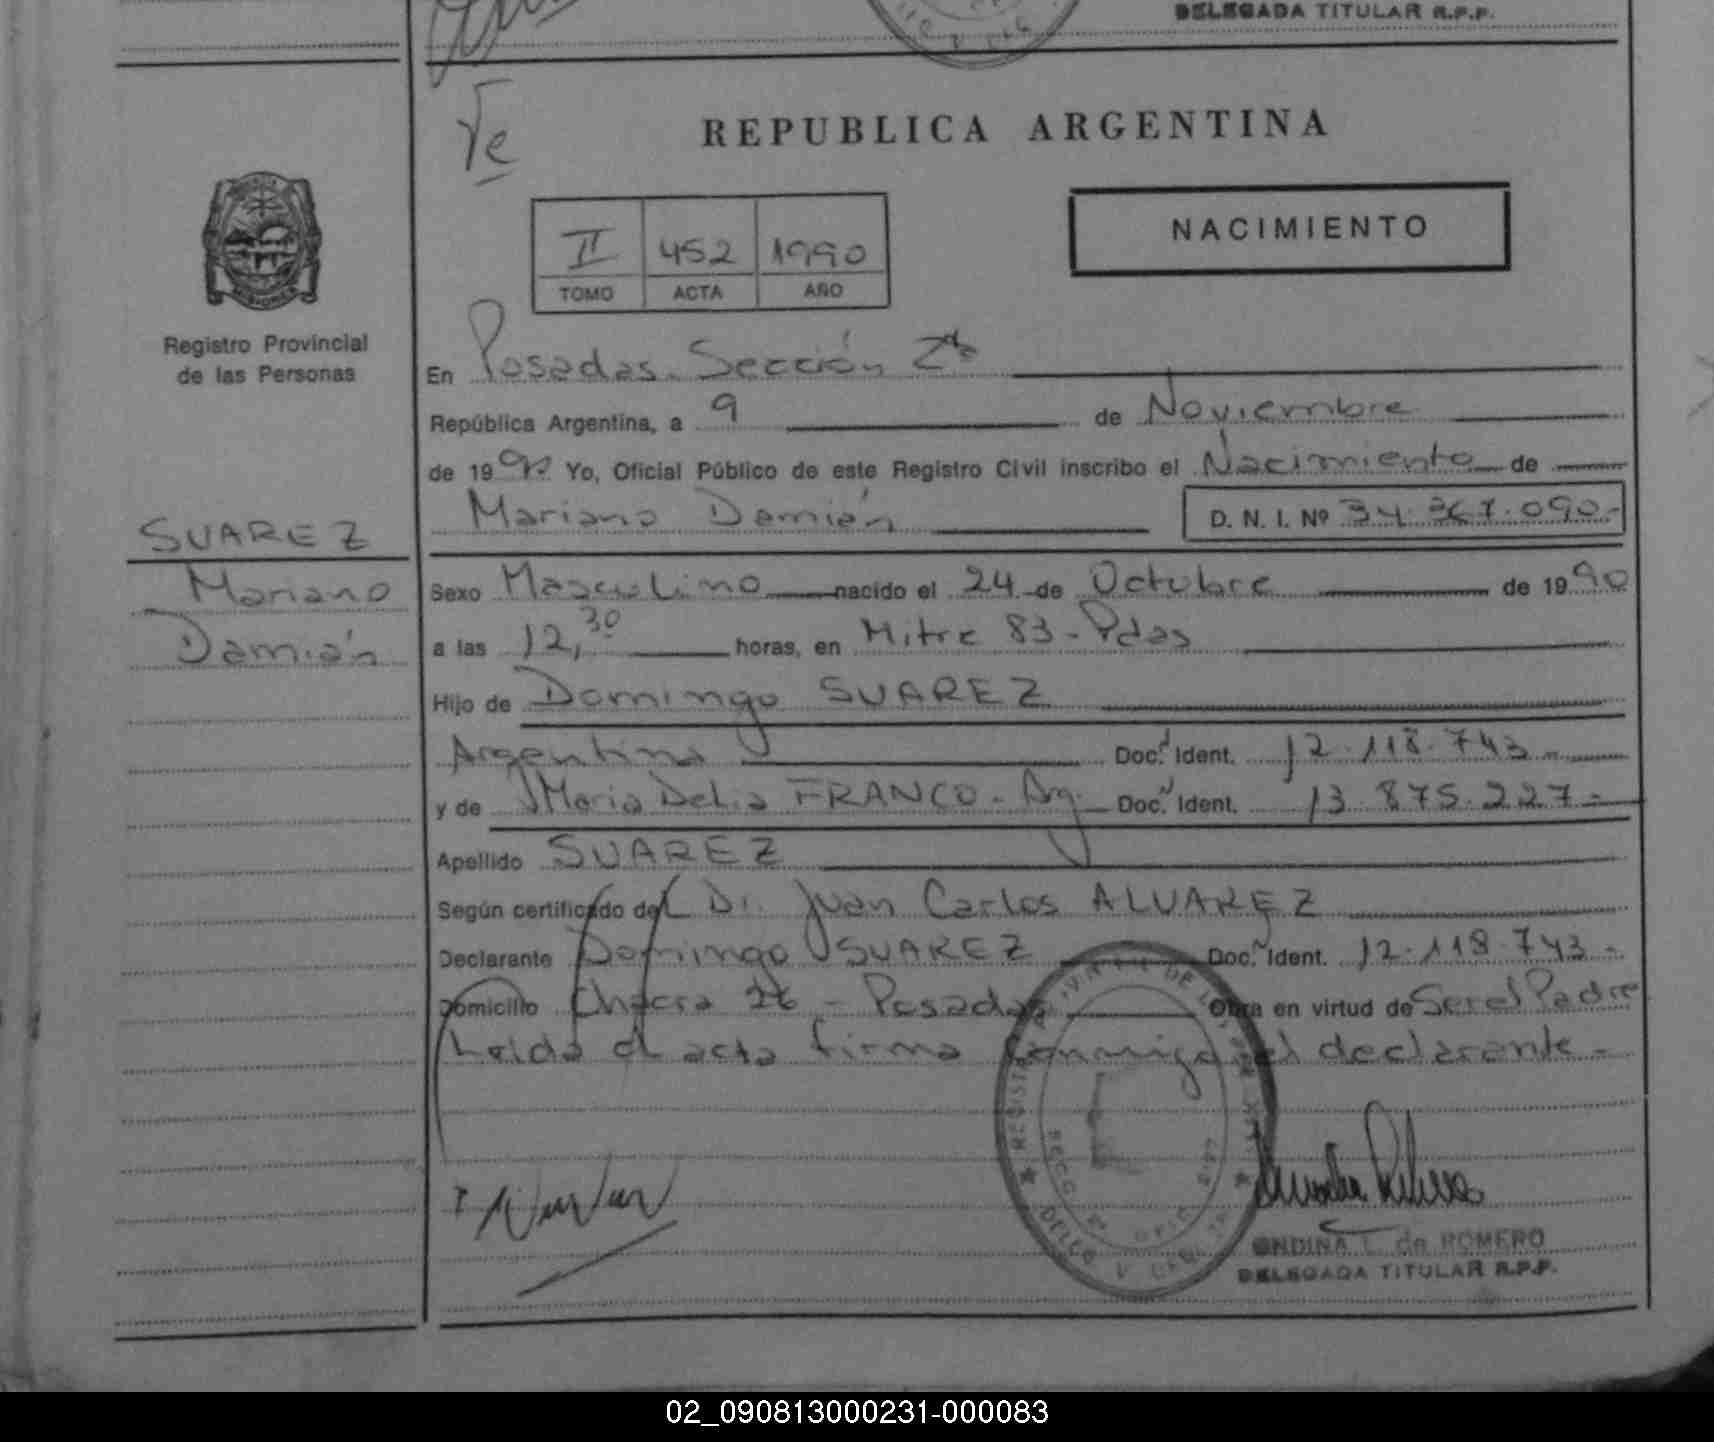 DELEGADA TITULAR R.P.P.
REPUBLICA ARGENTINA
NACIMIENTO
II 452 1990
TOMO ACTA AÑO
MISIONES
Registro Provincial
de las Personas
En Posadas. Sección 2da
República Argentina, a 9 de Noviembre
de 1990 Yo, Oficial Público de este Registro Civil inscribo el Nacimiento de
Mariano Damián D. N. I. Nº 34.367.090.-
SUAREZ
Mariano
Damián
Sexo Masculino nacido el 24 de Octubre de 1990
a las 12,30 horas, en Mitre 83 - Pdas
Hijo de Domingo SUAREZ
Argentina Doc. Ident. 12.118.743.-
y de María Delia FRANCO - Arg. Doc. Ident. 13.875.227.-
Apellido SUAREZ
Según certificado del Dr. Juan Carlos ALVAREZ
Declarante Domingo SUAREZ Doc. Ident. 12.118.743.-
Domicilio Chacra 26 - Posadas Obra en virtud de Ser el Padre
Leida el acta firma conmigo el declarante -
ONDINA L. de ROMERO
DELEGADA TITULAR R.P.P.
02_090813000231-000083